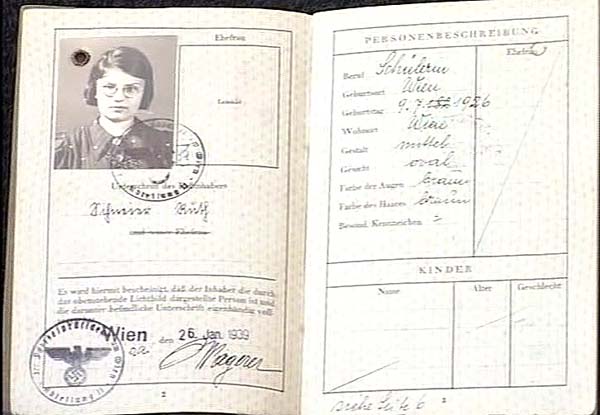 Ehefrau
Lichtbild
Unterschrift des Paßinhabers
Ruth
und seiner Ehefrau
Es wird hiermit bescheinigt, daß der Inhaber die durch
das obenstehende Lichtbild dargestellte Person ist und
die darunter befindliche Unterschrift eigenhändig voll-
Wien, den 26. Jan. 1939
2
PERSONENBESCHREIBUNG
Ehefrau
Beruf Schülerin
Geburtsort Wien
Geburtstag 9.7. 1926
Wohnort Wien
Gestalt mittel
Gesicht oval
Farbe der Augen braun
Farbe des Haares braun
Besond. Kennzeichen
KINDER
Name Alter Geschlecht
siehe Seite 6
3